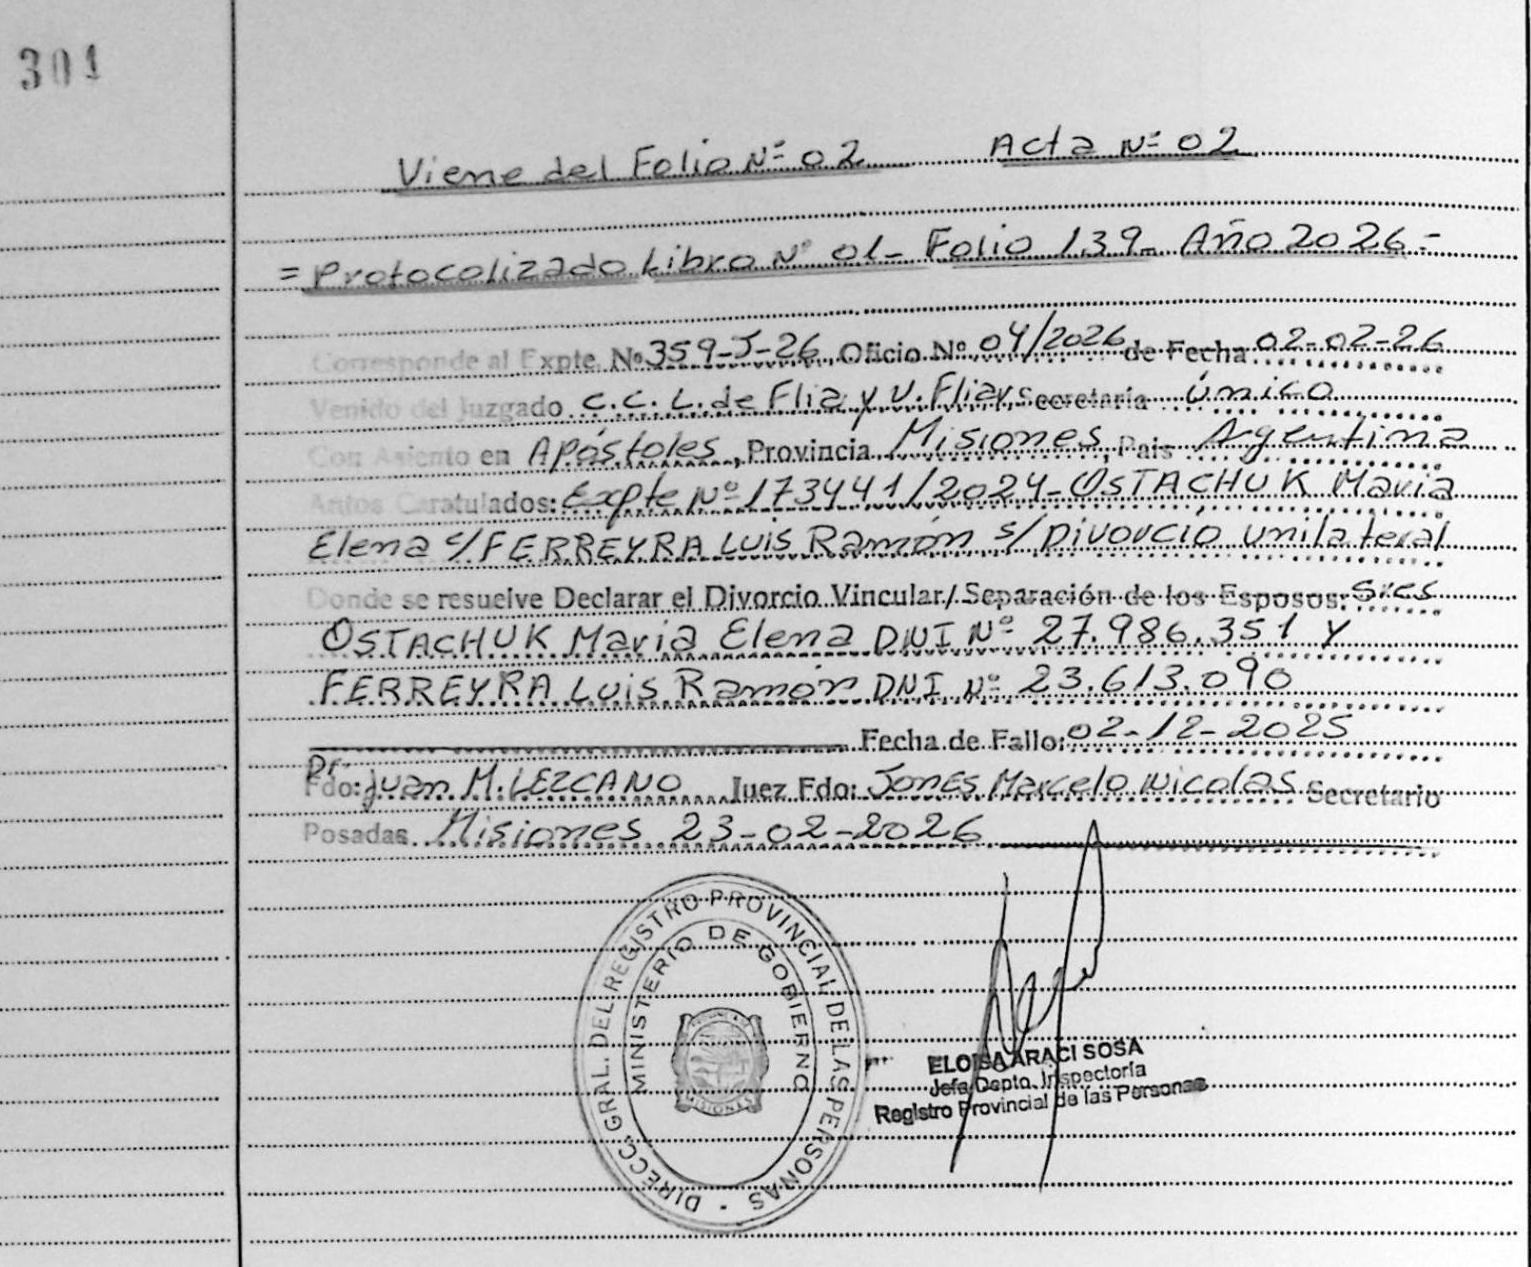 301
Viene del Folio Nº 02 Acta Nº 02
= Protocolizado Libro Nº 01- Folio 139- Año 2026 -
Corresponde al Expte. Nº 359-J-26, Oficio Nº 04/2026 de Fecha 02-02-26
Venido del Juzgado C.C. L. de Flia y V. Fliar Secretaría único
Con Asiento en Apóstoles, Provincia Misiones, Pais Argentina
Autos Caratulados: Expte Nº 173441/2024-OSTACHUK Maria
Elena c/FERREYRA LUIS Ramón s/ Divorcio unilateral
Donde se resuelve Declarar el Divorcio Vincular/Separación de los Esposos: sres
OSTACHUK Maria Elena DNI Nº 27.986.351 y
FERREYRA LUIS Ramón DNI Nº 23.613.090
Fecha de Fallo: 02-12-2025
Fdo: Dr. Juan M. LEZCANO Juez Fdo: Jones Marcelo Nicolas Secretario
Posadas. Misiones 23-02-2026
DIRECC. GRAL. DEL REGISTRO PROVINCIAL DE LAS PERSONAS -
MINISTERIO DE GOBIERNO
MISIONES
ELOISA ARACI SOSA
Jefa Depto. Inspectoría
Registro Provincial de las Personas